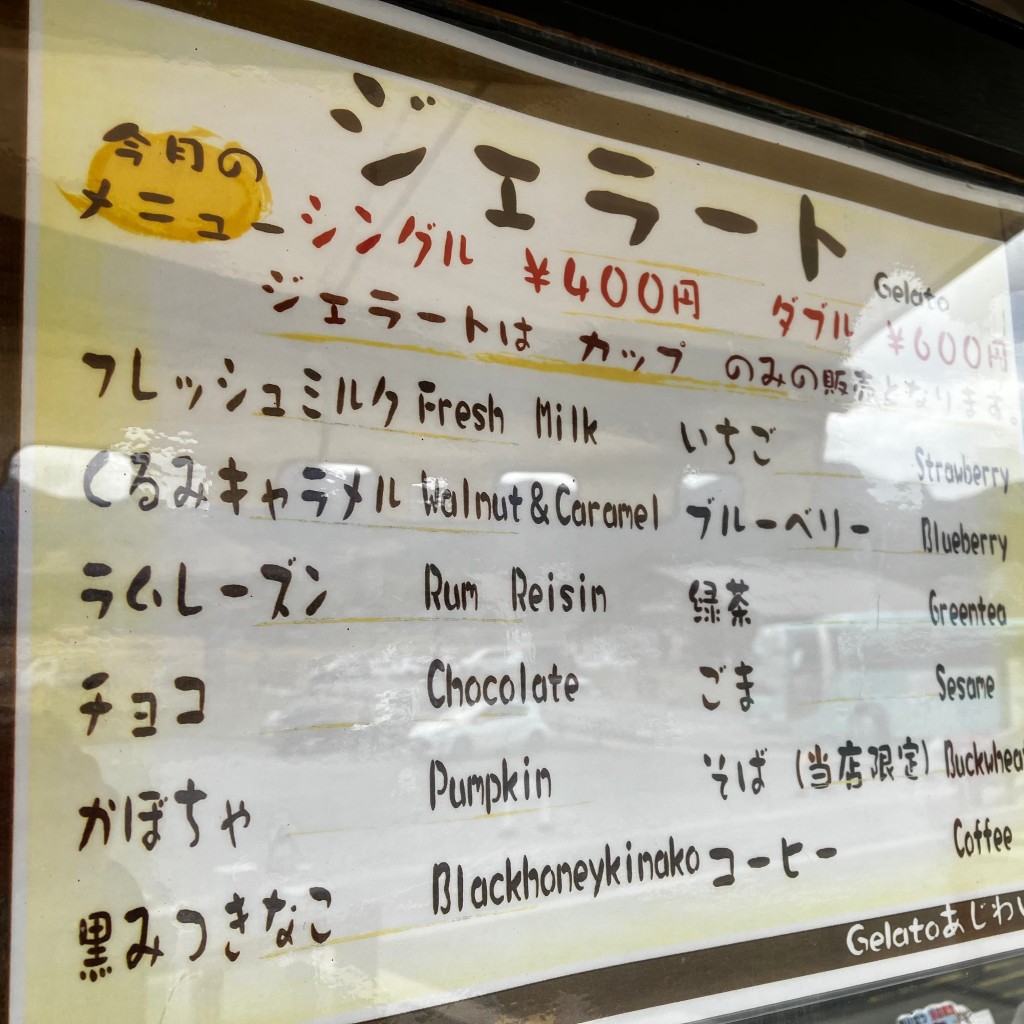 ジェラート
Gelato
今月の
メニュー
シングル ¥400円 ダブル ¥600円
ジェラートは カップ のみの販売となります。
フレッシュミルク Fresh Milk
くるみキャラメル Walnut&Caramel
ラムレーズン Rum Reisin
チョコ Chocolate
かぼちゃ Pumpkin
黒みつきなこ Blackhoneykinako
いちご Strawberry
ブルーベリー Blueberry
緑茶 Greentea
ごま Sesame
そば (当店限定) Buckwhea
コーヒー Coffee
Gelatoあじわい